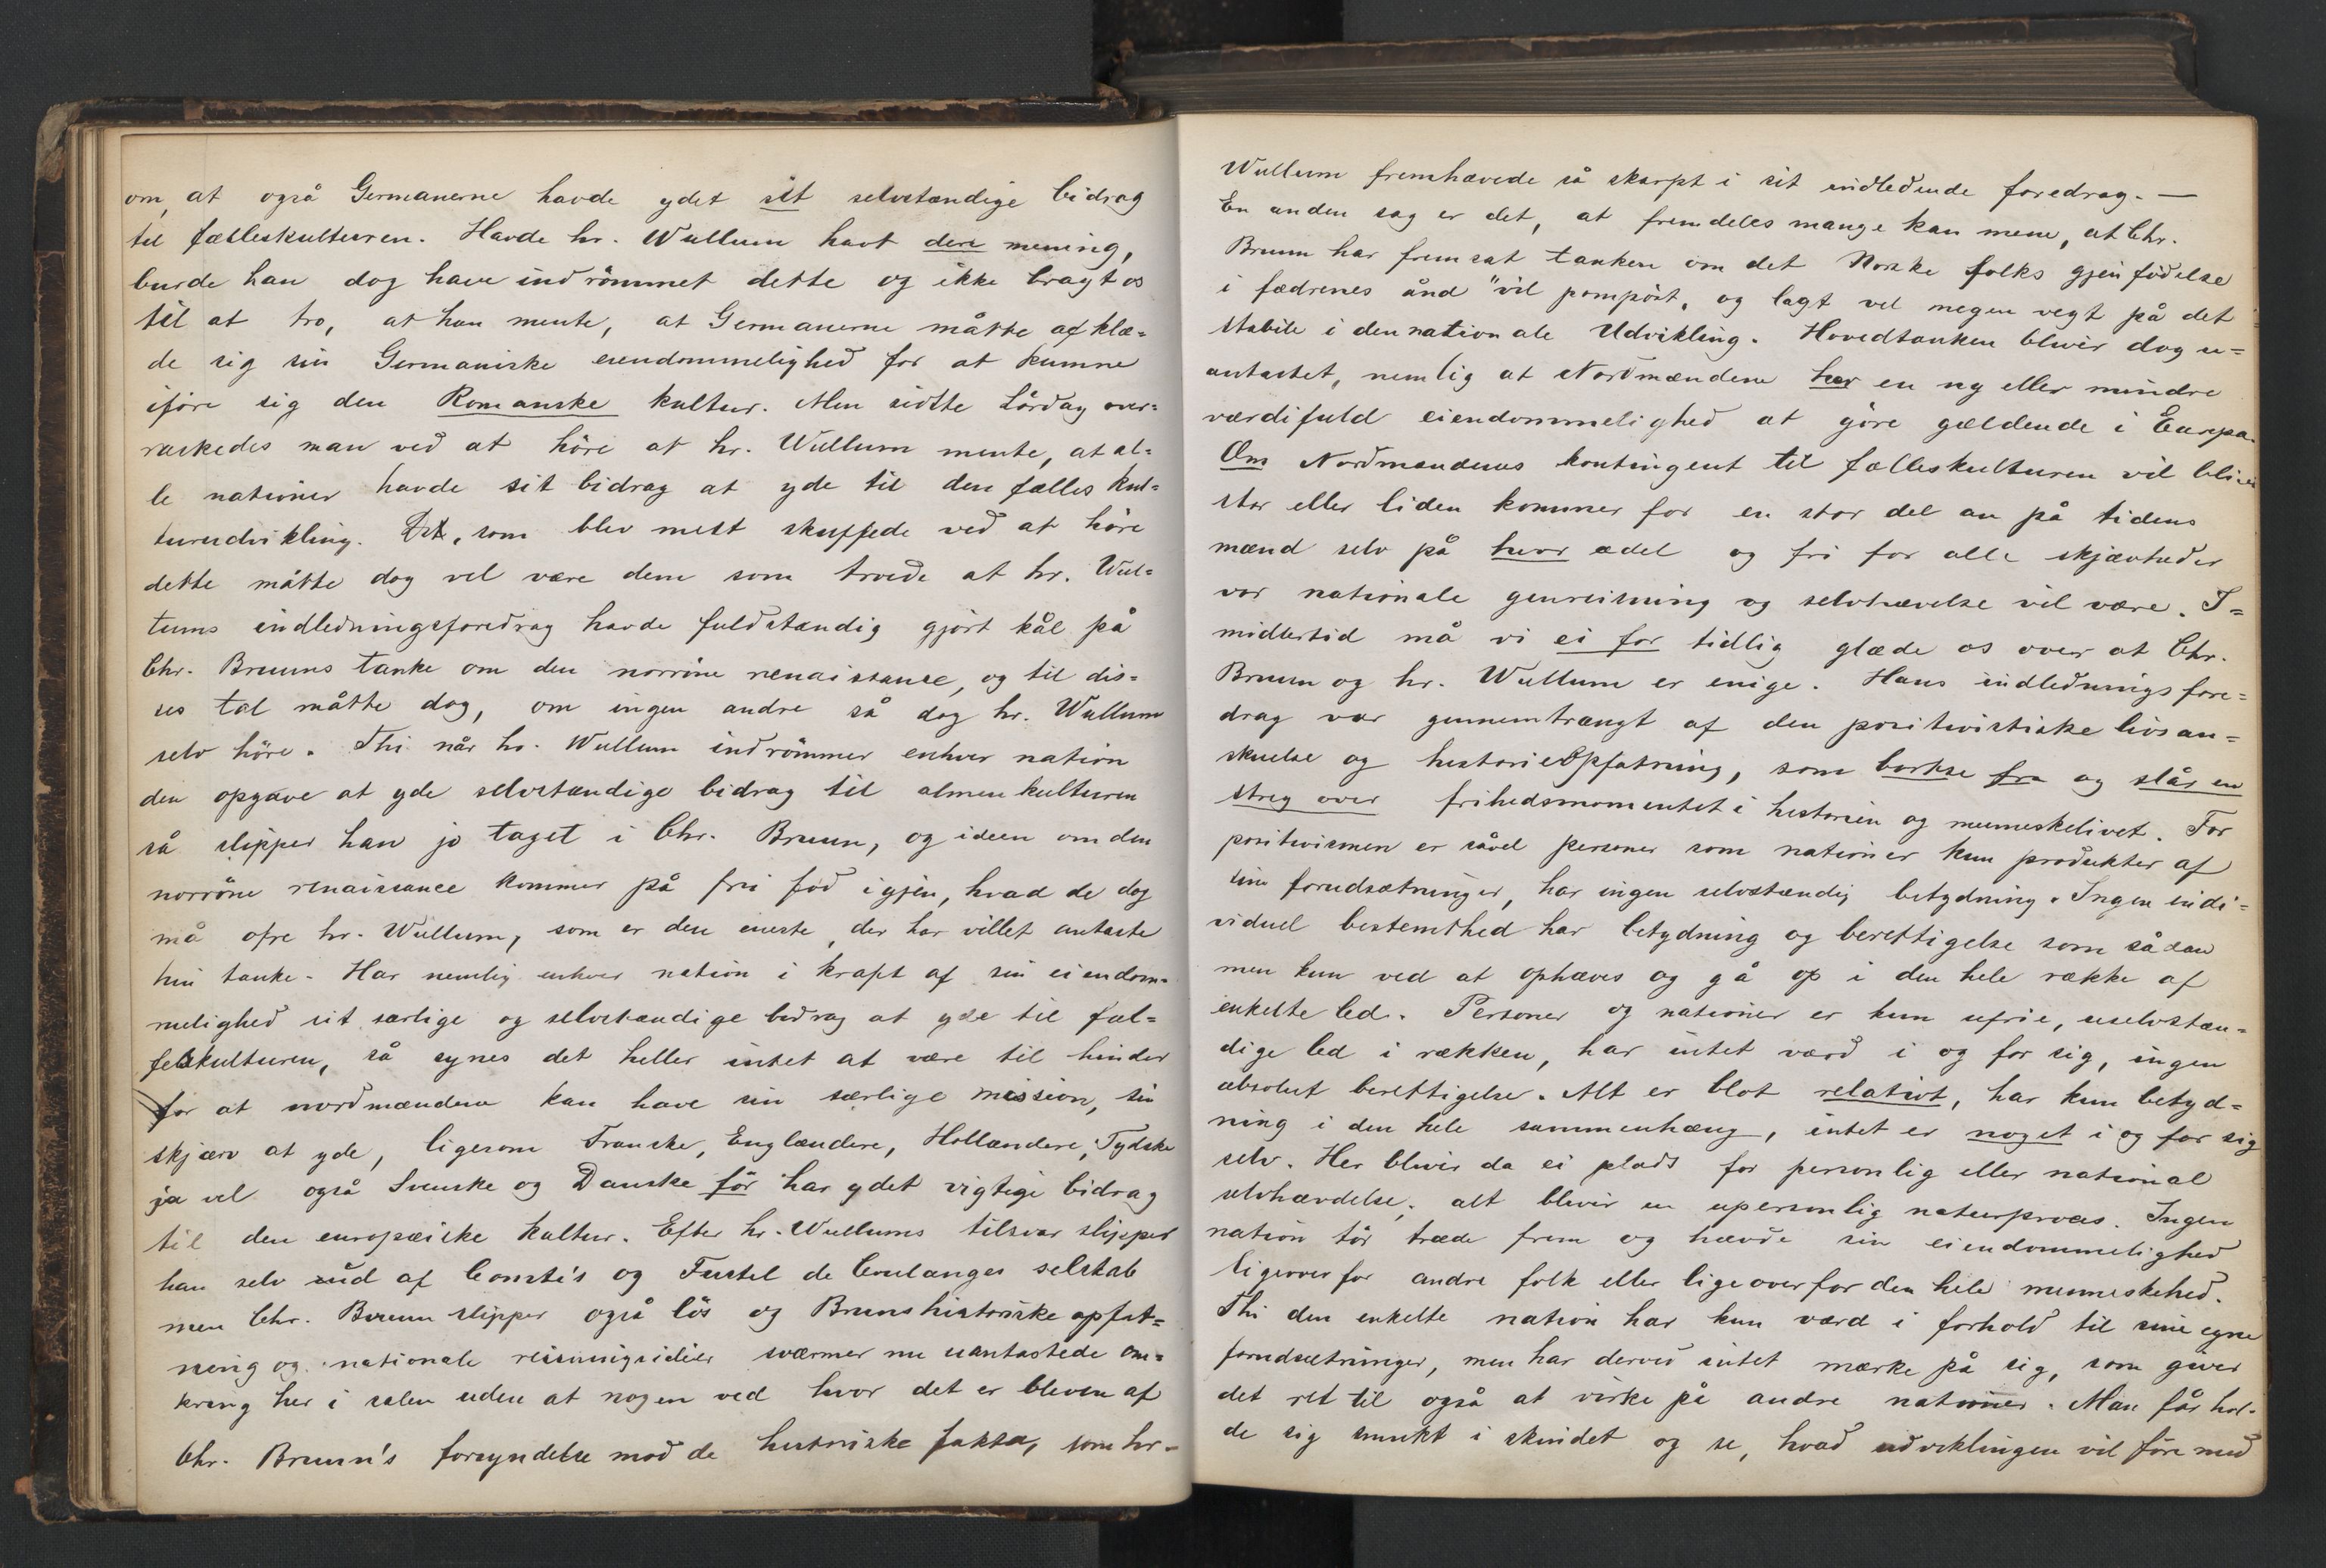 om, at også Germanerne havde ydet sit selvstændige bidrag
til fælleskulturen. Havde hr. Wullum havt den mening,
burde han dog have indrömmet dette og ikke bragt os
til at tro, at han mente, at Germanerne måtte afklæ=
de sig sin Germaniske eiendommelighed for at kunne
iföre sig den Romanske kultur. Men sidste Lördag over=
raskedes man ved at höre at hr. Wullum mente, at al=
le nationer havde sit bidrag at yde til den fælles kul=
turudvikling. De, som blev mest skuffede ved at höre
dette måtte dog vel være dem som troede at hr. Wul=
lums indledningsforedrag havde fuldstændig gjört kål på
Chr. Bruuns tanke om den norröne renaissance, og til dis=
ses tal måtte dog, om ingen andre så dog hr. Wullum
selv höre. Thi når hr. Wullum indrömmer enhver nation
den opgave at yde selvstændige bidrag til almenkulturen
så slipper han jo taget i Chr. Bruun, og ideen om den
norröne renaissance kommer på fri fod igjen, hvad de dog
må ofre hr. Wullum, som er den eneste, der har villet antaste
hin tanke. Har nemlig enhver nation i kraft af sin eiendom=
melighed sit særlige og selvstændige bidrag at yde til fæl=
leskulturen, så synes det heller intet at være til hinder
for at nordmændene kan have sin særlige mission, sin
skjærv at yde, ligesom Franske, Englændere, Hollændere, Tydske
ja vel også Svenske og Danske för har ydet vigtige bidrag
til den europæiske kultur. Efter hr. Wullums tilsvar slipper
han selv ud af Comte's og Fustel de Coulanges selskab
men Chr. Bruun slipper også lös og Bruns historiske opfat=
ning og nationale reisningsideer sværmer nu uantastede om=
kring her i salen uden at nogen ved hvor det er bleven af
Chr. Bruun's forsyndelse mod de historiske fakta, som hr.
Wullum fremhævede så skarpt i sit indledende foredrag. —
En anden sag er det, at fremdeles mange kan mene, at Chr.
Bruun har fremsat tanken om det Norske folks gjenfödelse
i fædrenes ånd "vel pompöst, og lagt vel megen vegt på det
stabile i den nationale Udvikling. Hovedtanken bliver dog u=
antastet, nemlig at Nordmændene har en ny eller mindre
værdifuld eiendommelighed at göre gældende i Europa.
Om Nordmændenes kontingent til fælleskulturen vil blive
stor eller liden kommer for en stor del an på tidens
mænd selv på hvor ædel og fri for alle skjævheder
vor nationale genreisning og selvhævelse vil være. I=
midlertid må vi ei for tidlig glæde os over at Chr.
Bruun og hr. Wullum er enige. Hans indlednings fore=
drag var gennemtrængt af den positivistiske livsan=
skuelse og historieopfatning, som bortse fra og slår en
streg over frihedsmomentet i historien og menneskelivet. For
positivismen er såvel personer som nationer kun produkter af
sine forudsætninger, har ingen selvstændig betydning. Ingen indi=
viduel bestemthed har betydning og berettigelse som sådan
men kun ved at ophæves og gå op i den hele række af
enkelte led. Personer og nationer er kun ufrie, uselvstæn=
dige led i rækken, har intet værd i og for sig, ingen
absolut berettigelse. Alt er blot relativt, har kun betyd=
ning i den hele sammenhæng, intet er noget i og for sig
selv. Her bliver da ei plads for personlig eller national
selvhævdelse; alt bliver en upersonlig naturproces. Ingen
nation tör træde frem og hævde sin eiendommelighed
ligeoverfor andre folk eller ligeoverfor den hele menneskehed.
Thi den enkelte nation har kun værd i forhold til sine egne
forudsætninger, men har derved intet mærke på sig, som giver
det ret til også at virke på andre nationer. Man får hol=
de sig smukt i skindet og se, hvad udviklingen vil före med